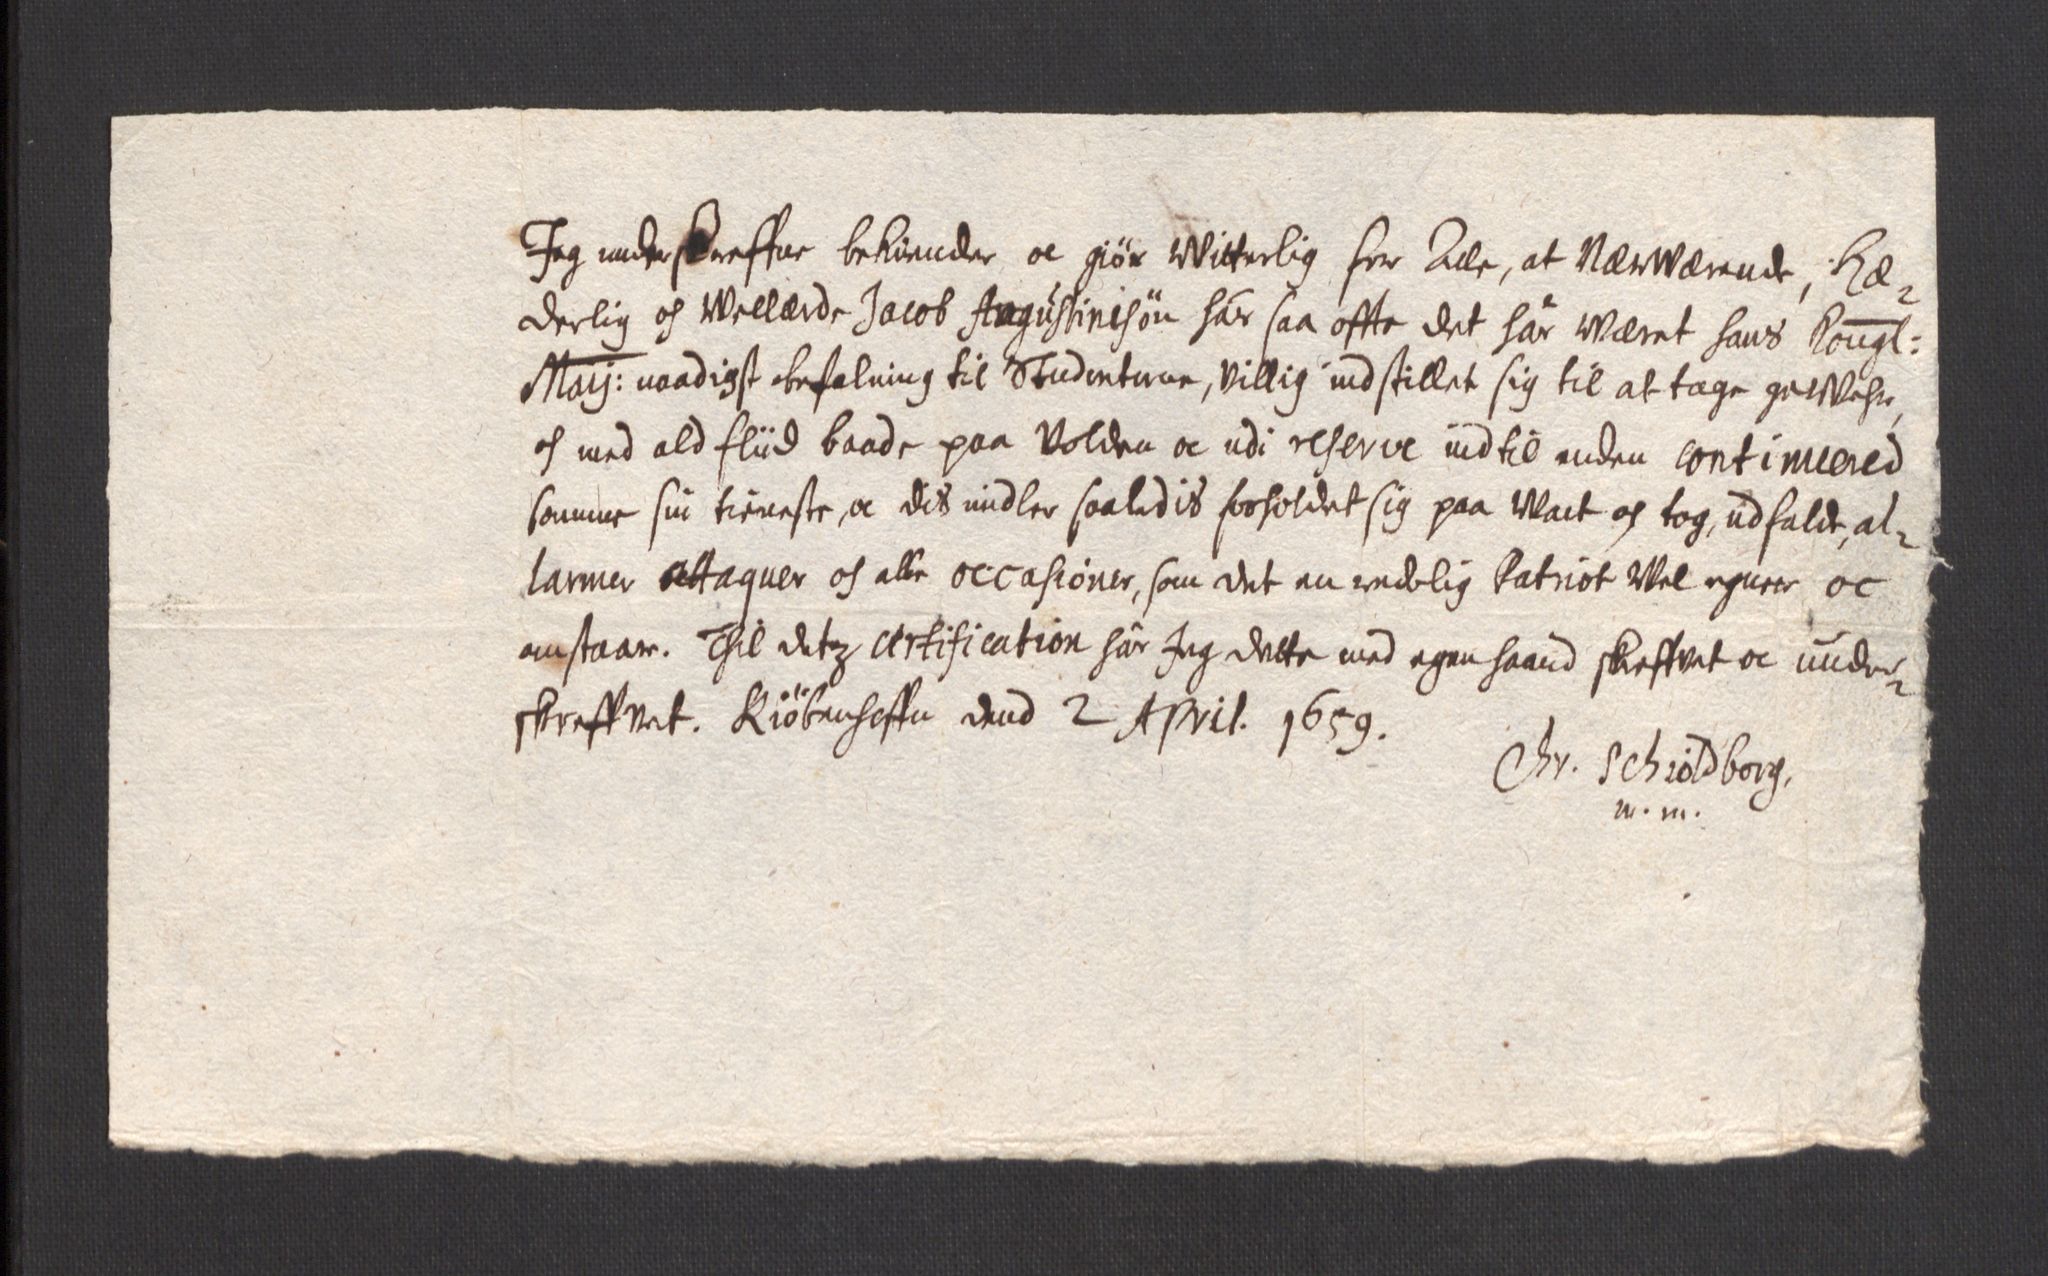 Jeg underskreffne bekiender oc giör Witterlig for Alle, at NærWærende, Hæ-
derlig oc Wellærde Jacob Augustinisön hår saa offte det hår Wæret hans Kongl:
Maij: naadigst befalning til Studenterne, Villig indstillet sig til at tage geWehr,
oc med ald fliid baade paa Volden oc udi reserve indtil enden continuered
samme sin tieneste, oc dis midler saaledis forholdet sig paa Wact oc tog, udfalde, al-
larmer attaquer oc alle occasioner, som det en redelig Patriot Vel egner oc
anstaar. Thil detz Certification hår Jeg dette med egen haand skreffvet oc under-
skreffvet. Kiöbenhaffn dend 2 April. 1659.
Chr. Schioldborg.
m. m.